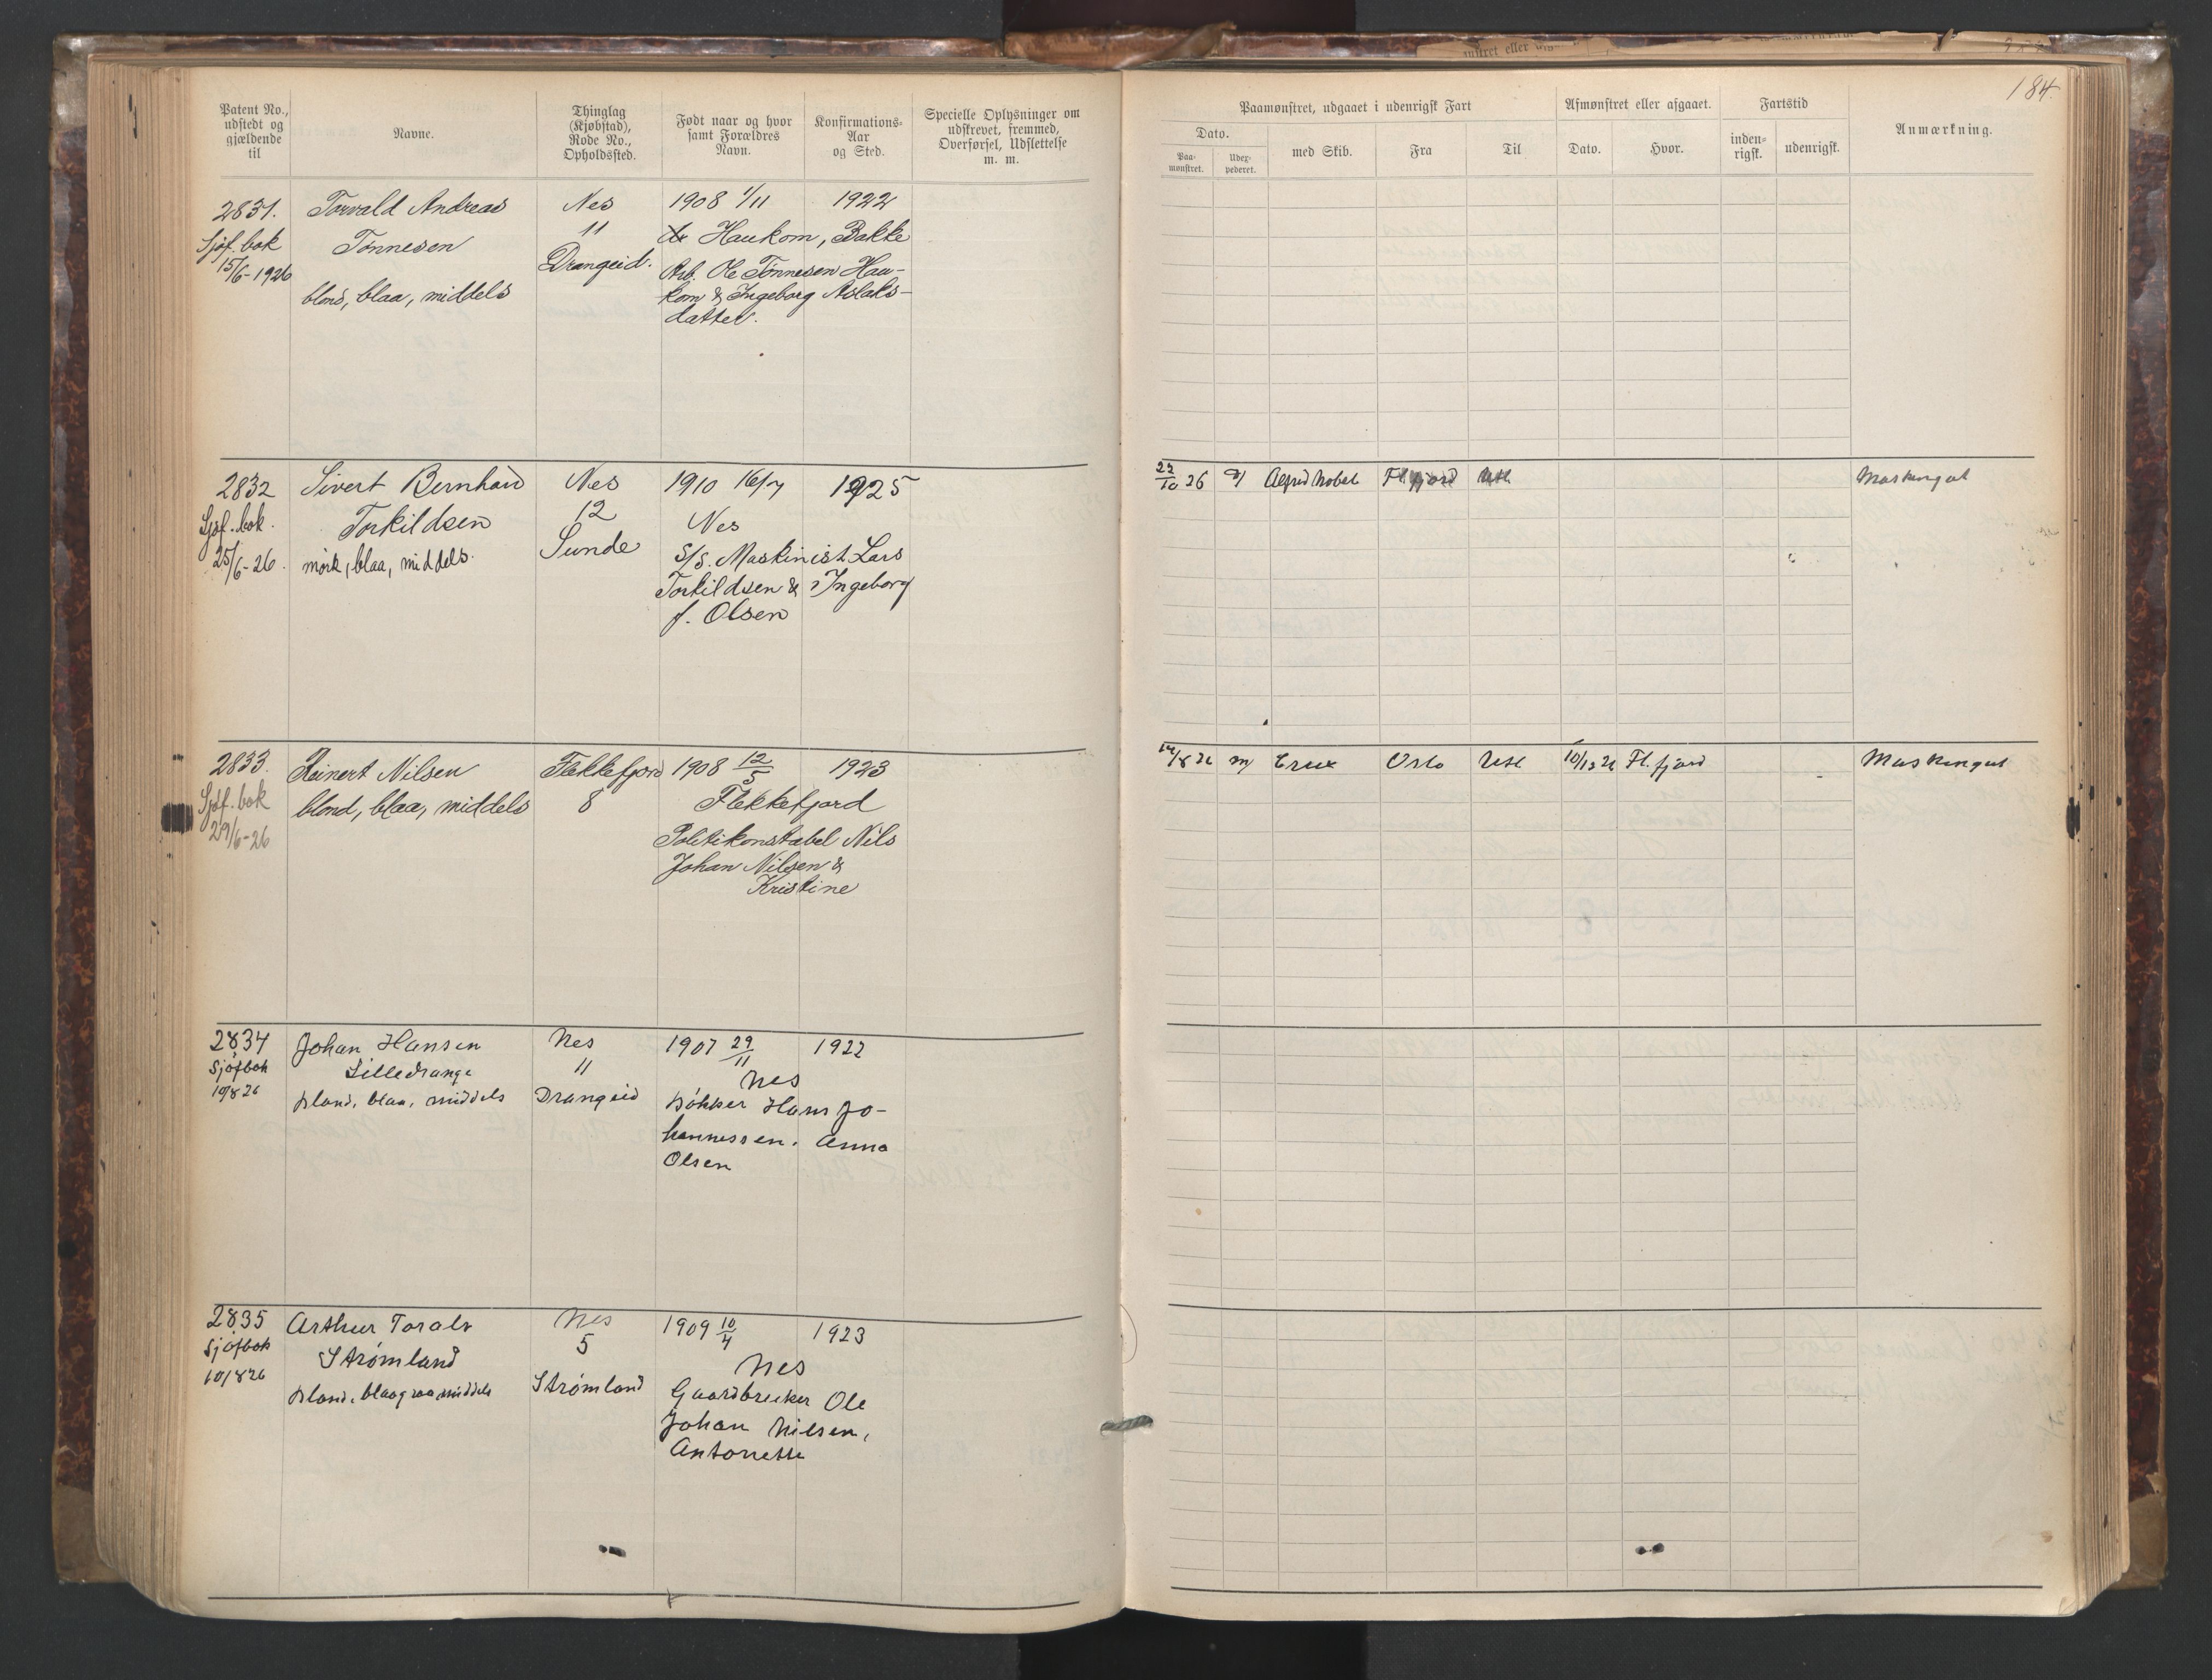 184.
Patent No., udstedt og gjældende til
Navne.
Thinglag (Kjøbstad), Rode No., Opholdssted.
Født naar og hvor samt Forældres Navn.
Konfirmations-Aar og Sted.
Specielle Oplysninger om udskrevet, fremmed, Overførsel, Udslettelse m. m.
Paamønstret, udgaaet i udenrigsk Fart
Afmønstret eller afgaaet.
Fartstid
Anmærkning.
Dato.
Paa-mønstret.
Udex-pederet.
med Skib.
Fra
Til
Dato.
Hvor.
inden-rigsk.
udenrigsk.
2831.
Sjøf. bok
15/6-1926
Torvald Andreas
Tønnesen
blond, blaa, middels
Nes
11
Drangeid.
1908 1/11
1922
Haukom, Bakke
Arb. Ole Tønnesen Hau-
kom & Ingeborg Aslaks-
datter.
2832
Sjøf. bok.
25/6-26.
Sivert Bernhard
Torkildsen
mørk, blaa, middels.
Nes
12
Sunde
1910 16/7
1925
Nes
S/S. Maskinist Lars
Torkildsen & Ingeborg
f. Olsen
22/10 26
Alfred Nobel
Fl.fjord
Utl
Maskingut
2833.
Sjøf. bok
29/6-26
Reinert Nilsen
blond, blaa, middels
Flekkefjord
8
1908 12/5
1923
Flekkefjord
Politikonstabel Nils
Johan Nilsen &
Kristine
14/8 26
Crux
Oslo
Utl
10/12 26
Fl. fjord
Maskingut
2834
Sjøfbok
10/8 26
Johan Hansen
Lilledrange
blond, blaa, middels
Nes
11
Drangeid
1907 29/11
1922
Nes
Bøkker Hans Jo-
hannessen. Anna
Olsen
2835
Sjøfbok
10/8 26
Arthur Toralv
Strømland
blond, blaagraa middels
Nes
5
Strømland
1909 10/4
1923
Nes
Gaardbruker Ole
Johan Nilsen,
Antonette